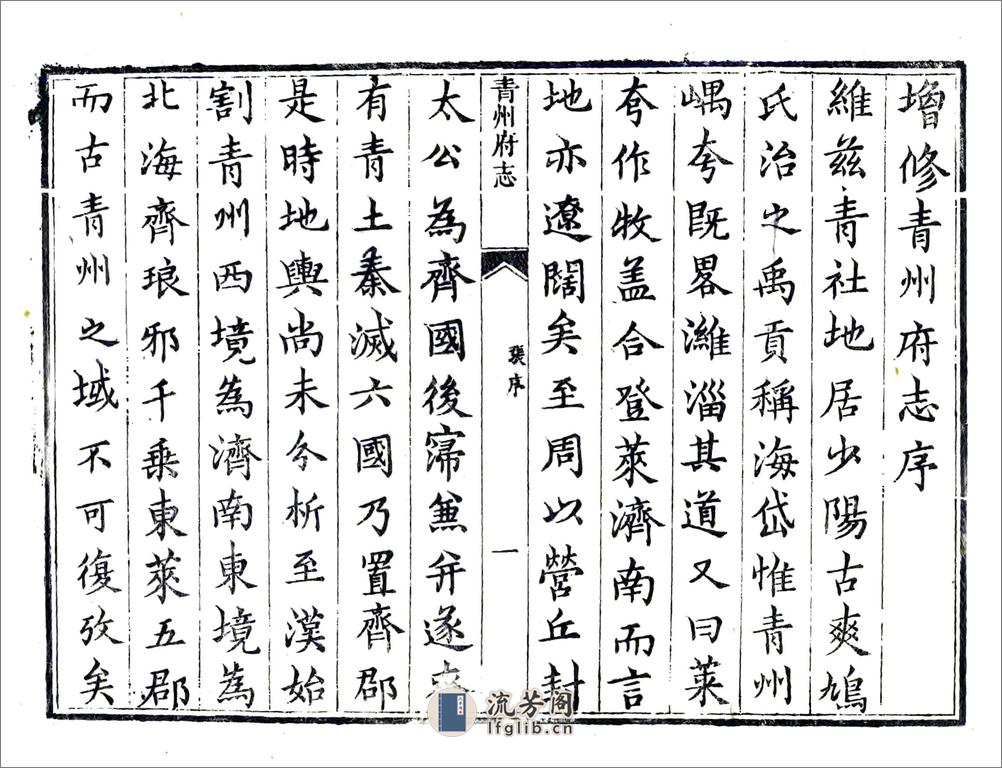 增修青州府志序
維兹青社地居少陽古爽鳩
氏治之禹貢稱海岱惟青州
嵎夷既畧濰淄其道又曰萊
夷作牧盖合登萊濟南而言
地亦遼闊矣至周以營丘封
青州府志
張序
一
太公為齊國後寖兼并遂
有青土秦滅六國乃置齊郡
是時地輿尚未分析至漢始
割青州西境為濟南東境為
北海齊琅邪千乗東萊五郡
而古青州之域不可復攷矣
流芳阁
lfglib.cn